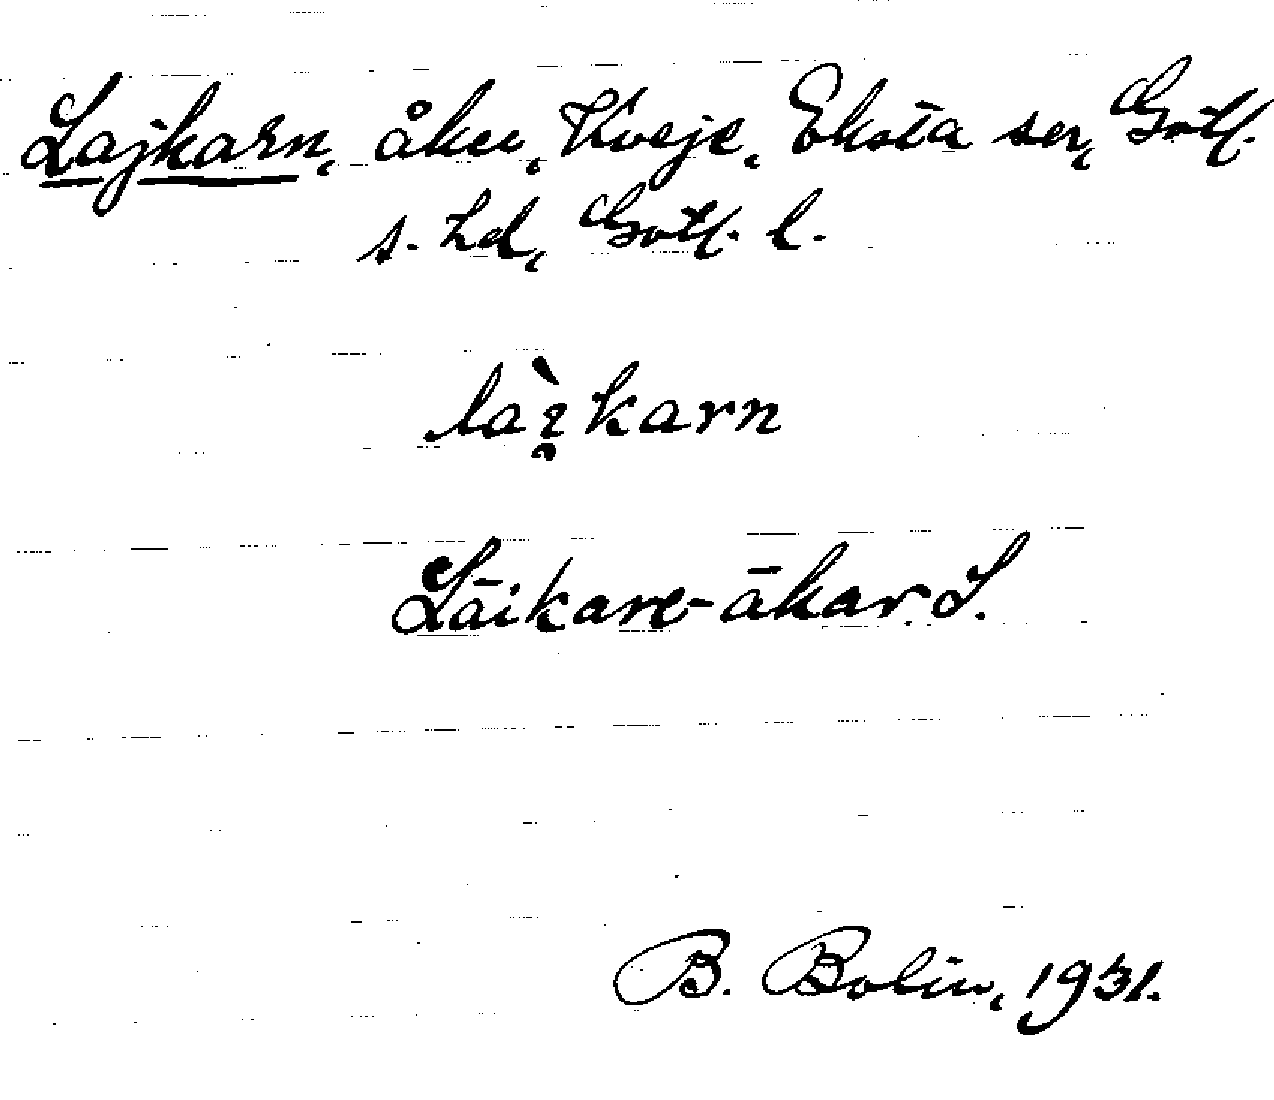 Lajkarn, åker, Kveje, Eksta sn, Gotl.
s. hd, Gotl. l.
làı̯karn
Läikare-åkar L.
B. Bolin, 1931.